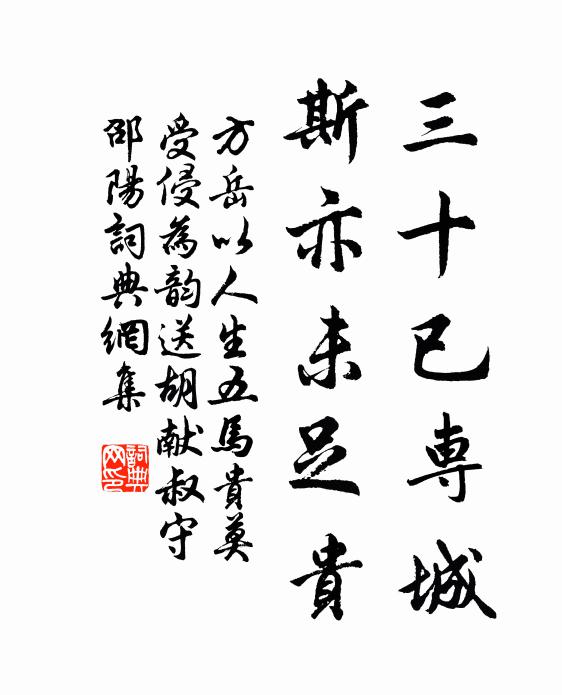 三十已専城
斯亦未足貴
方岳以人生五馬貴莫
受侵為韵送胡献叔守
邵陽詞典網集
詞典网印